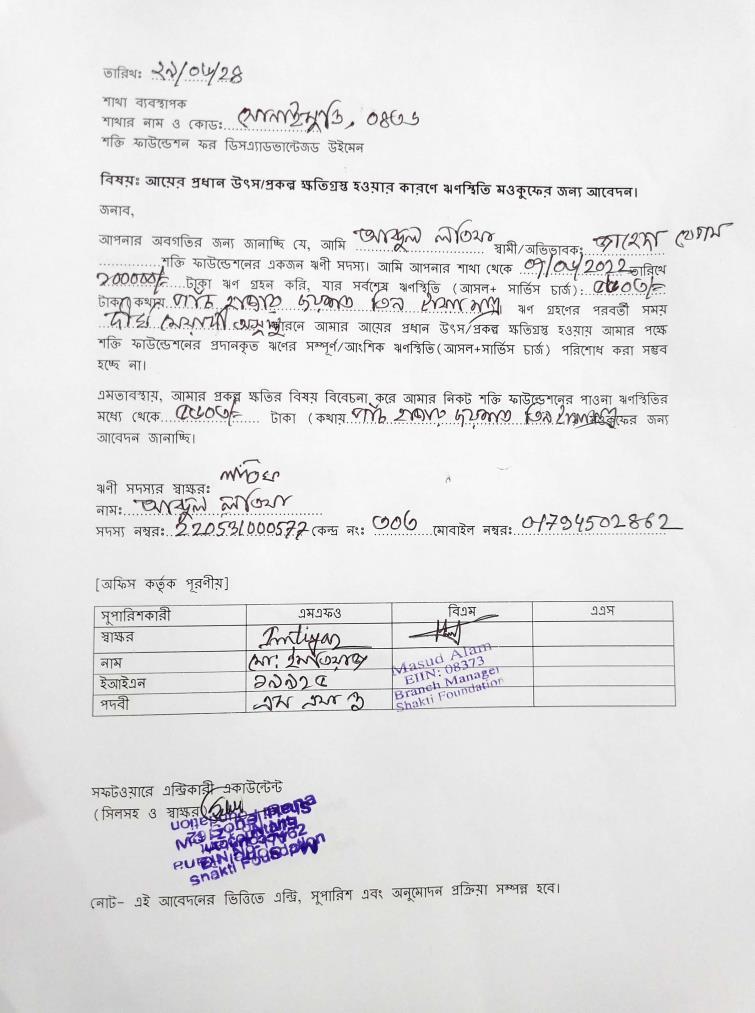 তারিখঃ ২৯/০৮/২৪
শাখা ব্যবস্থাপক
শাখার নাম ও কোডঃ সোনাইমুড়ি, ০৪৩৬
শক্তি ফাউন্ডেশন ফর ডিসএ্যাডভান্টেজড উইমেন
বিষয়ঃ আয়ের প্রধান উৎস/প্রকল্প ক্ষতিগ্রস্থ হওয়ার কারণে ঋণস্থিতি মওকুফের জন্য আবেদন।
জনাব,
আপনার অবগতির জন্য জানাচ্ছি যে, আমি আব্দুল লতিফ স্বামী/অভিভাবক: জাহেদা বেগম
শক্তি ফাউন্ডেশনের একজন ঋণী সদস্য। আমি আপনার শাখা থেকে ০৭/০৮/2022 তারিখে
200000/- টাকা ঋণ গ্রহন করি, যার সর্বশেষ ঋণস্থিতি (আসল+ সার্ভিস চার্জ): ৫৬০৩/-
টাকা কথায় পাঁচ হাজার ছয়শত তিন টাকা মাত্র ঋণ গ্রহণের পরবর্তী সময়
দীর্ঘ মেয়াদী অসুস্থ কারনে আমার আয়ের প্রধান উৎস/প্রকল্প ক্ষতিগ্রস্থ হওয়ায় আমার পক্ষে
শক্তি ফাউন্ডেশনের প্রদানকৃত ঋণের সম্পূর্ণ/আংশিক ঋণস্থিতি(আসল+সার্ভিস চার্জ) পরিশোধ করা সম্ভব
হচ্ছে না।
এমতাবস্থায়, আমার প্রকল্প ক্ষতির বিষয় বিবেচনা করে আমার নিকট শক্তি ফাউন্ডেশনের পাওনা ঋণস্থিতির
মধ্যে থেকে ৫৬০৩/- টাকা (কথায় পাঁচ হাজার ছয়শত তিন টাকা মওকুফের জন্য
আবেদন জানাচ্ছি।
ঋণী সদস্যর স্বাক্ষর: লতিফ
নাম: আব্দুল লতিফ
সদস্য নম্বর: 220531000577 কেন্দ্র নং: ৩০৬ মোবাইল নম্বর: 01794502862
[অফিস কর্তৃক পূরণীয়]
সুপারিশকারী এমএফও বিএম এএস
স্বাক্ষর Imtiyaz
নাম মো: ইমতিয়াজ Masud Alam
ইআইএন ১৯৯২৫ EIIN: 08373
পদবী এম এফ ও Branch Manager
Shakti Foundation
সফটওয়ারে এন্ট্রিকারী একাউন্টেন্ট
(সিলসহ ও স্বাক্ষর)
Shakti Foundation
নোট- এই আবেদনের ভিত্তিতে এন্ট্রি, সুপারিশ এবং অনুমোদন প্রক্রিয়া সম্পন্ন হবে।